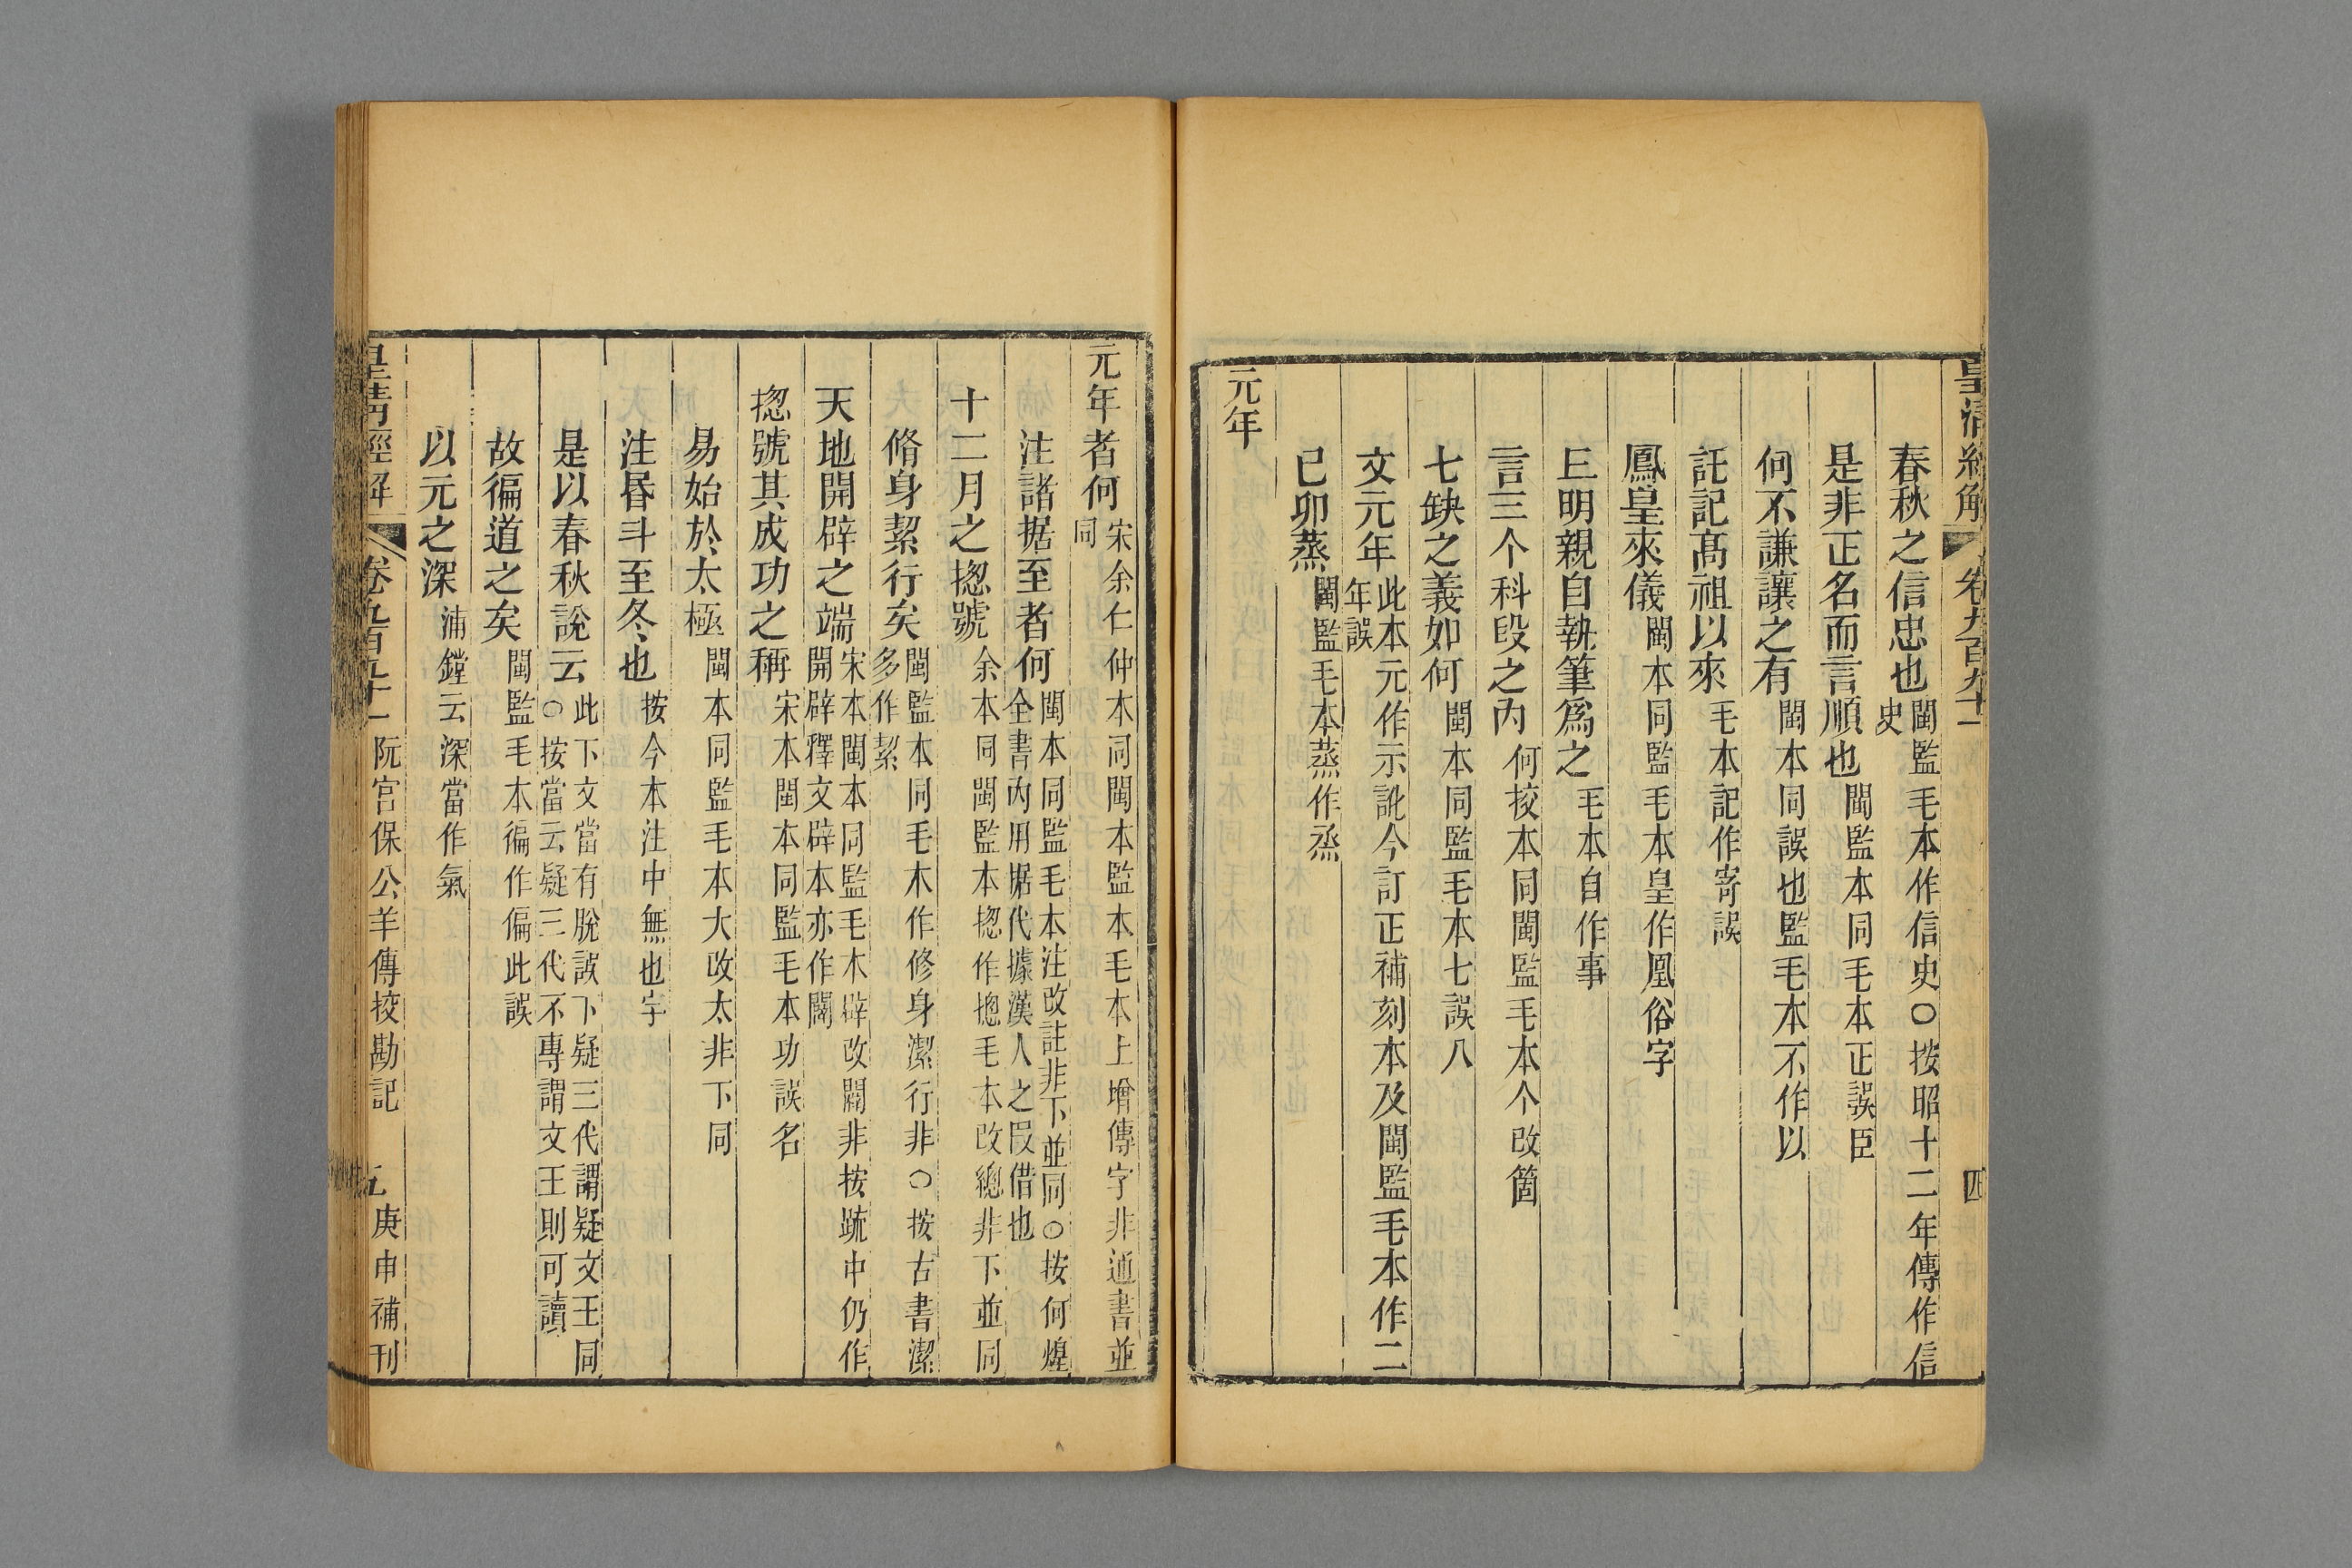 皇清經解 卷九百九十一 四
春秋之信忠也閩監毛本作信史○按昭十二年傳作信史
是非正名而言順也閩監本同毛本正誤臣
何不謙讓之有閩本同誤也監毛本不作以
託記髙祖以來毛本記作寄誤
鳳皇來儀閩本同監毛本皇作凰俗字
𠀇明親自執筆爲之毛本自作事
言三个科段之內何挍本同閩監毛本个改箇
七缺之義如何閩本同監毛本七誤八
文元年此本元作示訛今訂正補刻本及閩監毛本作二年誤
己卯蒸閩監毛本蒸作烝
元年
元年者何宋余仁仲本同閩本監本毛本上增傳字非通書並同
注諸据至者何閩本同監毛本注改註非下並同○按何煌全書內用据代據漢人之叚借也
十二月之揔號余本同閩監本揔作摠毛本改總非下並同
脩身絜行矣閩監本同毛本作修身潔行非○按古書潔多作絜
天地開辟之端宋本閩本同監毛本辟改闢非按䟽中仍作開辟釋文辟本亦作闢
揔號其成功之稱宋本閩本同監毛本功誤名
易始於太極閩本同監毛本大改太非下同
注昬斗至冬也按今本注中無也字
是以春秋說云此下文當有脫誤下疑三代謂疑文王同○按當云疑三代不專謂文王則可讀
故徧道之矣閩監毛本徧作偏此誤
以元之深浦鏜云深當作氣
皇清經解 卷九百九十一 阮宮保公羊傳挍勘記 五 庚申補刊